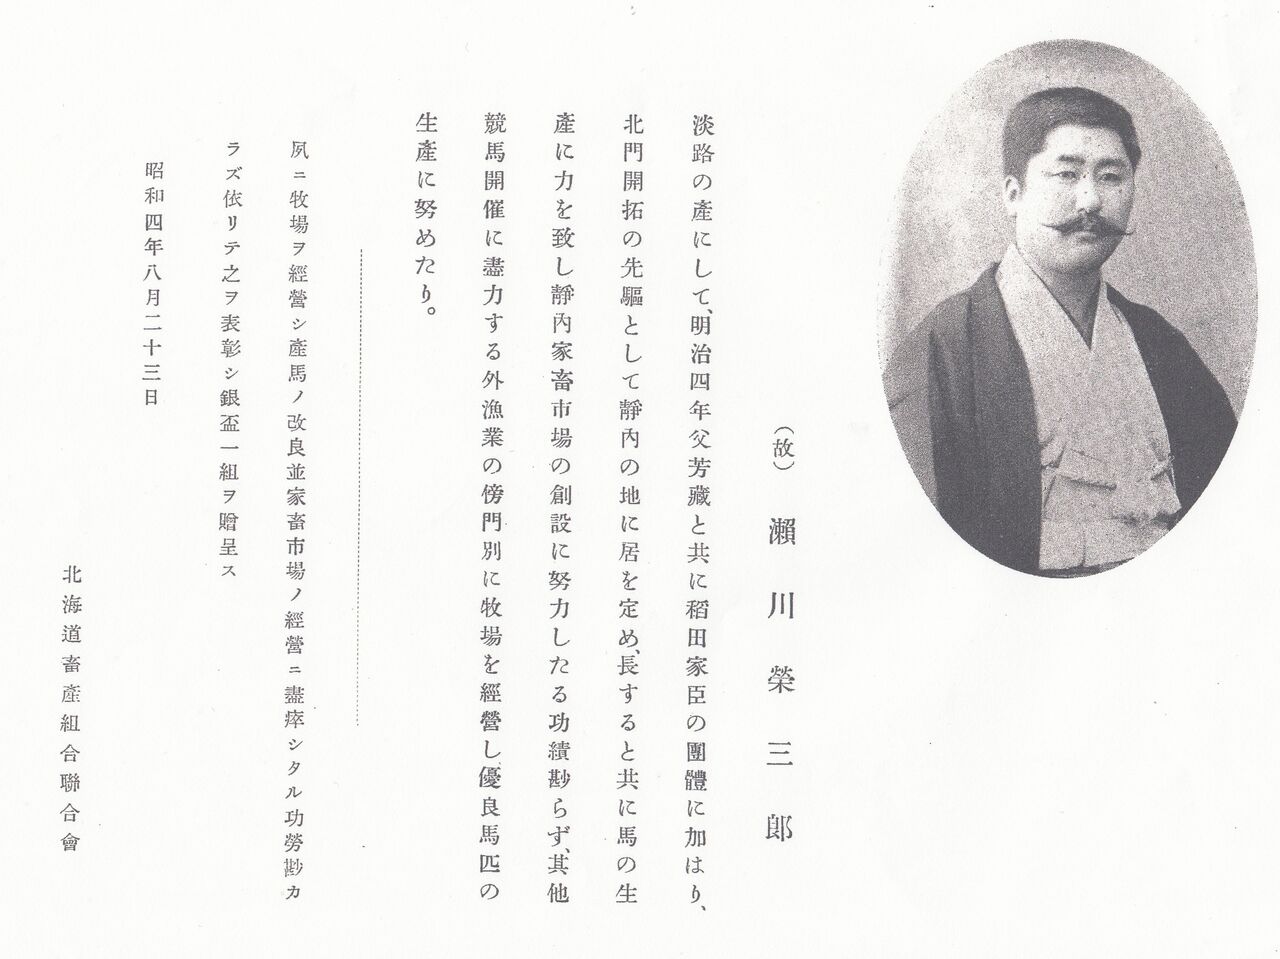 （故）瀨川榮三郎
淡路の產にして、明治四年父芳藏と共に稻田家臣の團體に加はり、
北門開拓の先驅として靜內の地に居を定め、長すると共に馬の生
產に力を致し靜內家畜市場の創設に努力したる功績尠らず、其他
競馬開催に盡力する外漁業の傍門別に牧場を經營し優良馬匹の
生產に努めたり。
夙ニ牧場ヲ經營シ產馬ノ改良並家畜市場ノ經營ニ盡瘁シタル功勞尠カ
ラズ依リテ之ヲ表彰シ銀盃一組ヲ贈呈ス
昭和四年八月二十三日
北海道畜產組合聯合會